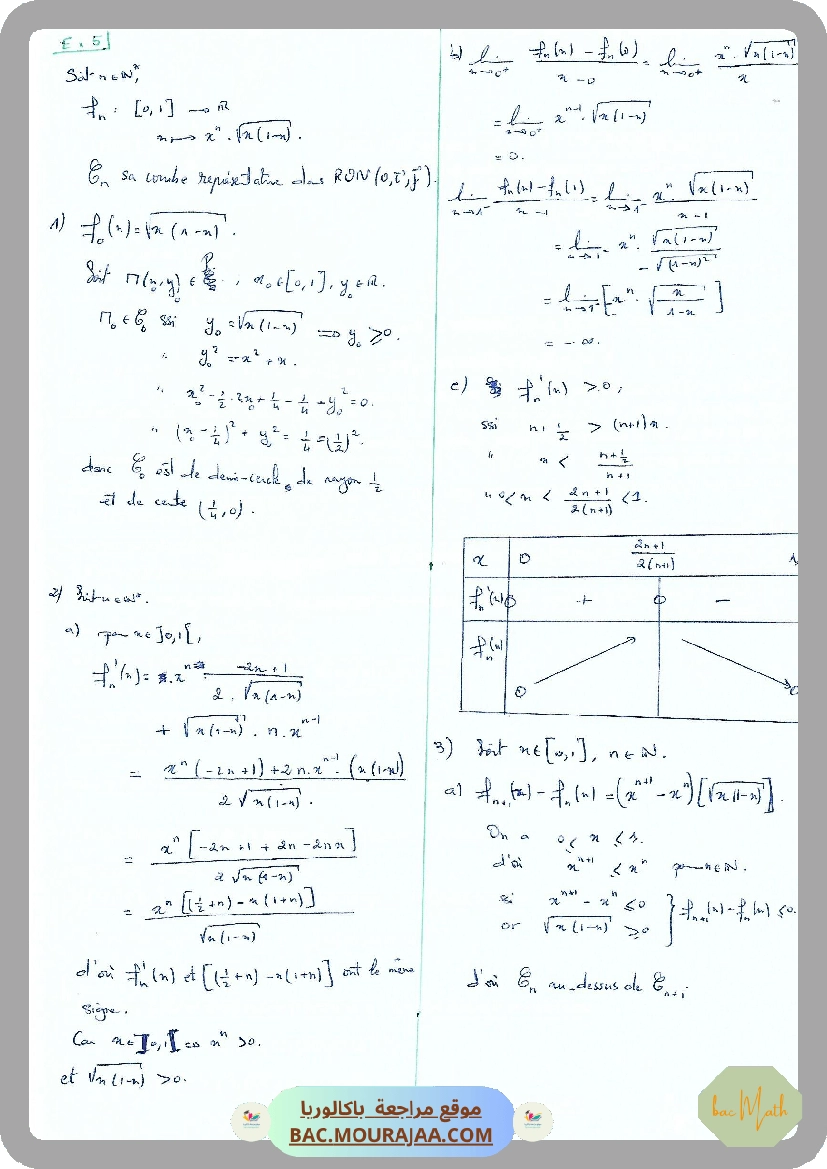 Ex 5
Soit n ∈ ℕ*,
fₙ : [0,1] → ℝ
x ↦ xⁿ . √(x(1-x)) .
𝒞ₙ sa courbe représentative dans RON (O,i⃗,j⃗).
1) f₀(x) = √(x(1-x)) .
Soit M(x₀,y₀) ∈ P , x₀ ∈ [0,1] , y₀ ∈ ℝ.
M₀ ∈ 𝒞₀ ssi y₀ = √(x(1-x)) ⟹ y₀ ≥ 0.
" y₀² = -x² + x.
" x₀² - 1/2 . 2x₀ + 1/4 - 1/4 + y₀² = 0.
" (x₀ - 1/4)² + y₀² = 1/4 = (1/2)².
donc 𝒞₀ est le demi-cercle, de rayon 1/2
et de centre (1/4, 0) .
2) Soit n ∈ ℕ*.
a) pour x ∈ ]0,1[ ,
fₙ'(x) = xⁿ . (-2x+1)/(2 . √(x(1-x)))
+ √(x(1-x)) . n . xⁿ⁻¹
= (xⁿ(-2x+1) + 2n . xⁿ⁻¹ . (x(1-x)))/(2√(x(1-x))) .
= xⁿ[-2x+1+2n-2nx]/(2√(x(1-x)))
= xⁿ[(1/2+n) - x(1+n)]/√(x(1-x))
d'où fₙ'(x) et [(1/2+n) - x(1+n)] ont le même
signe.
Car x ∈ ]0,1[ ⇒ xⁿ > 0.
et √(x(1-x)) > 0.
b) lim x→0⁺ (fₙ(x) - fₙ(0))/(x-0) = lim x→0⁺ xⁿ . √(x(1-x))/x
= lim x→0⁺ xⁿ⁻¹ . √(x(1-x))
= 0.
lim x→1⁻ (fₙ(x) - fₙ(1))/(x-1) = lim x→1⁻ xⁿ . √(x(1-x))/(x-1)
= lim x→1⁻ xⁿ . √(x(1-x))/(-√((1-x)²))
= lim x→1⁻ [-xⁿ . √(x/(1-x))]
= -∞.
c) fₙ'(x) > 0 ,
ssi n + 1/2 > (n+1)x .
" x < (n+1/2)/(n+1)
" 0 < x < (2n+1)/(2(n+1)) < 1.
x 0 (2n+1)/(2(n+1)) 1
fₙ'(x) 0 + 0 -
fₙ(x) 0 0
3) Soit x ∈ [0,1] , n ∈ ℕ.
a) fₙ₊₁(x) - fₙ(x) = (xⁿ⁺¹ - xⁿ)[√(x(1-x))] .
On a 0 ≤ x ≤ 1.
d'où xⁿ⁺¹ ≤ xⁿ pour n ∈ ℕ.
xⁿ⁺¹ - xⁿ ≤ 0
or √(x(1-x)) ≥ 0 } fₙ₊₁(x) - fₙ(x) ≤ 0.
d'où 𝒞ₙ au-dessus de 𝒞ₙ₊₁.
موقع مراجعة باكالوريا
BAC.MOURAJAA.COM
bac Math